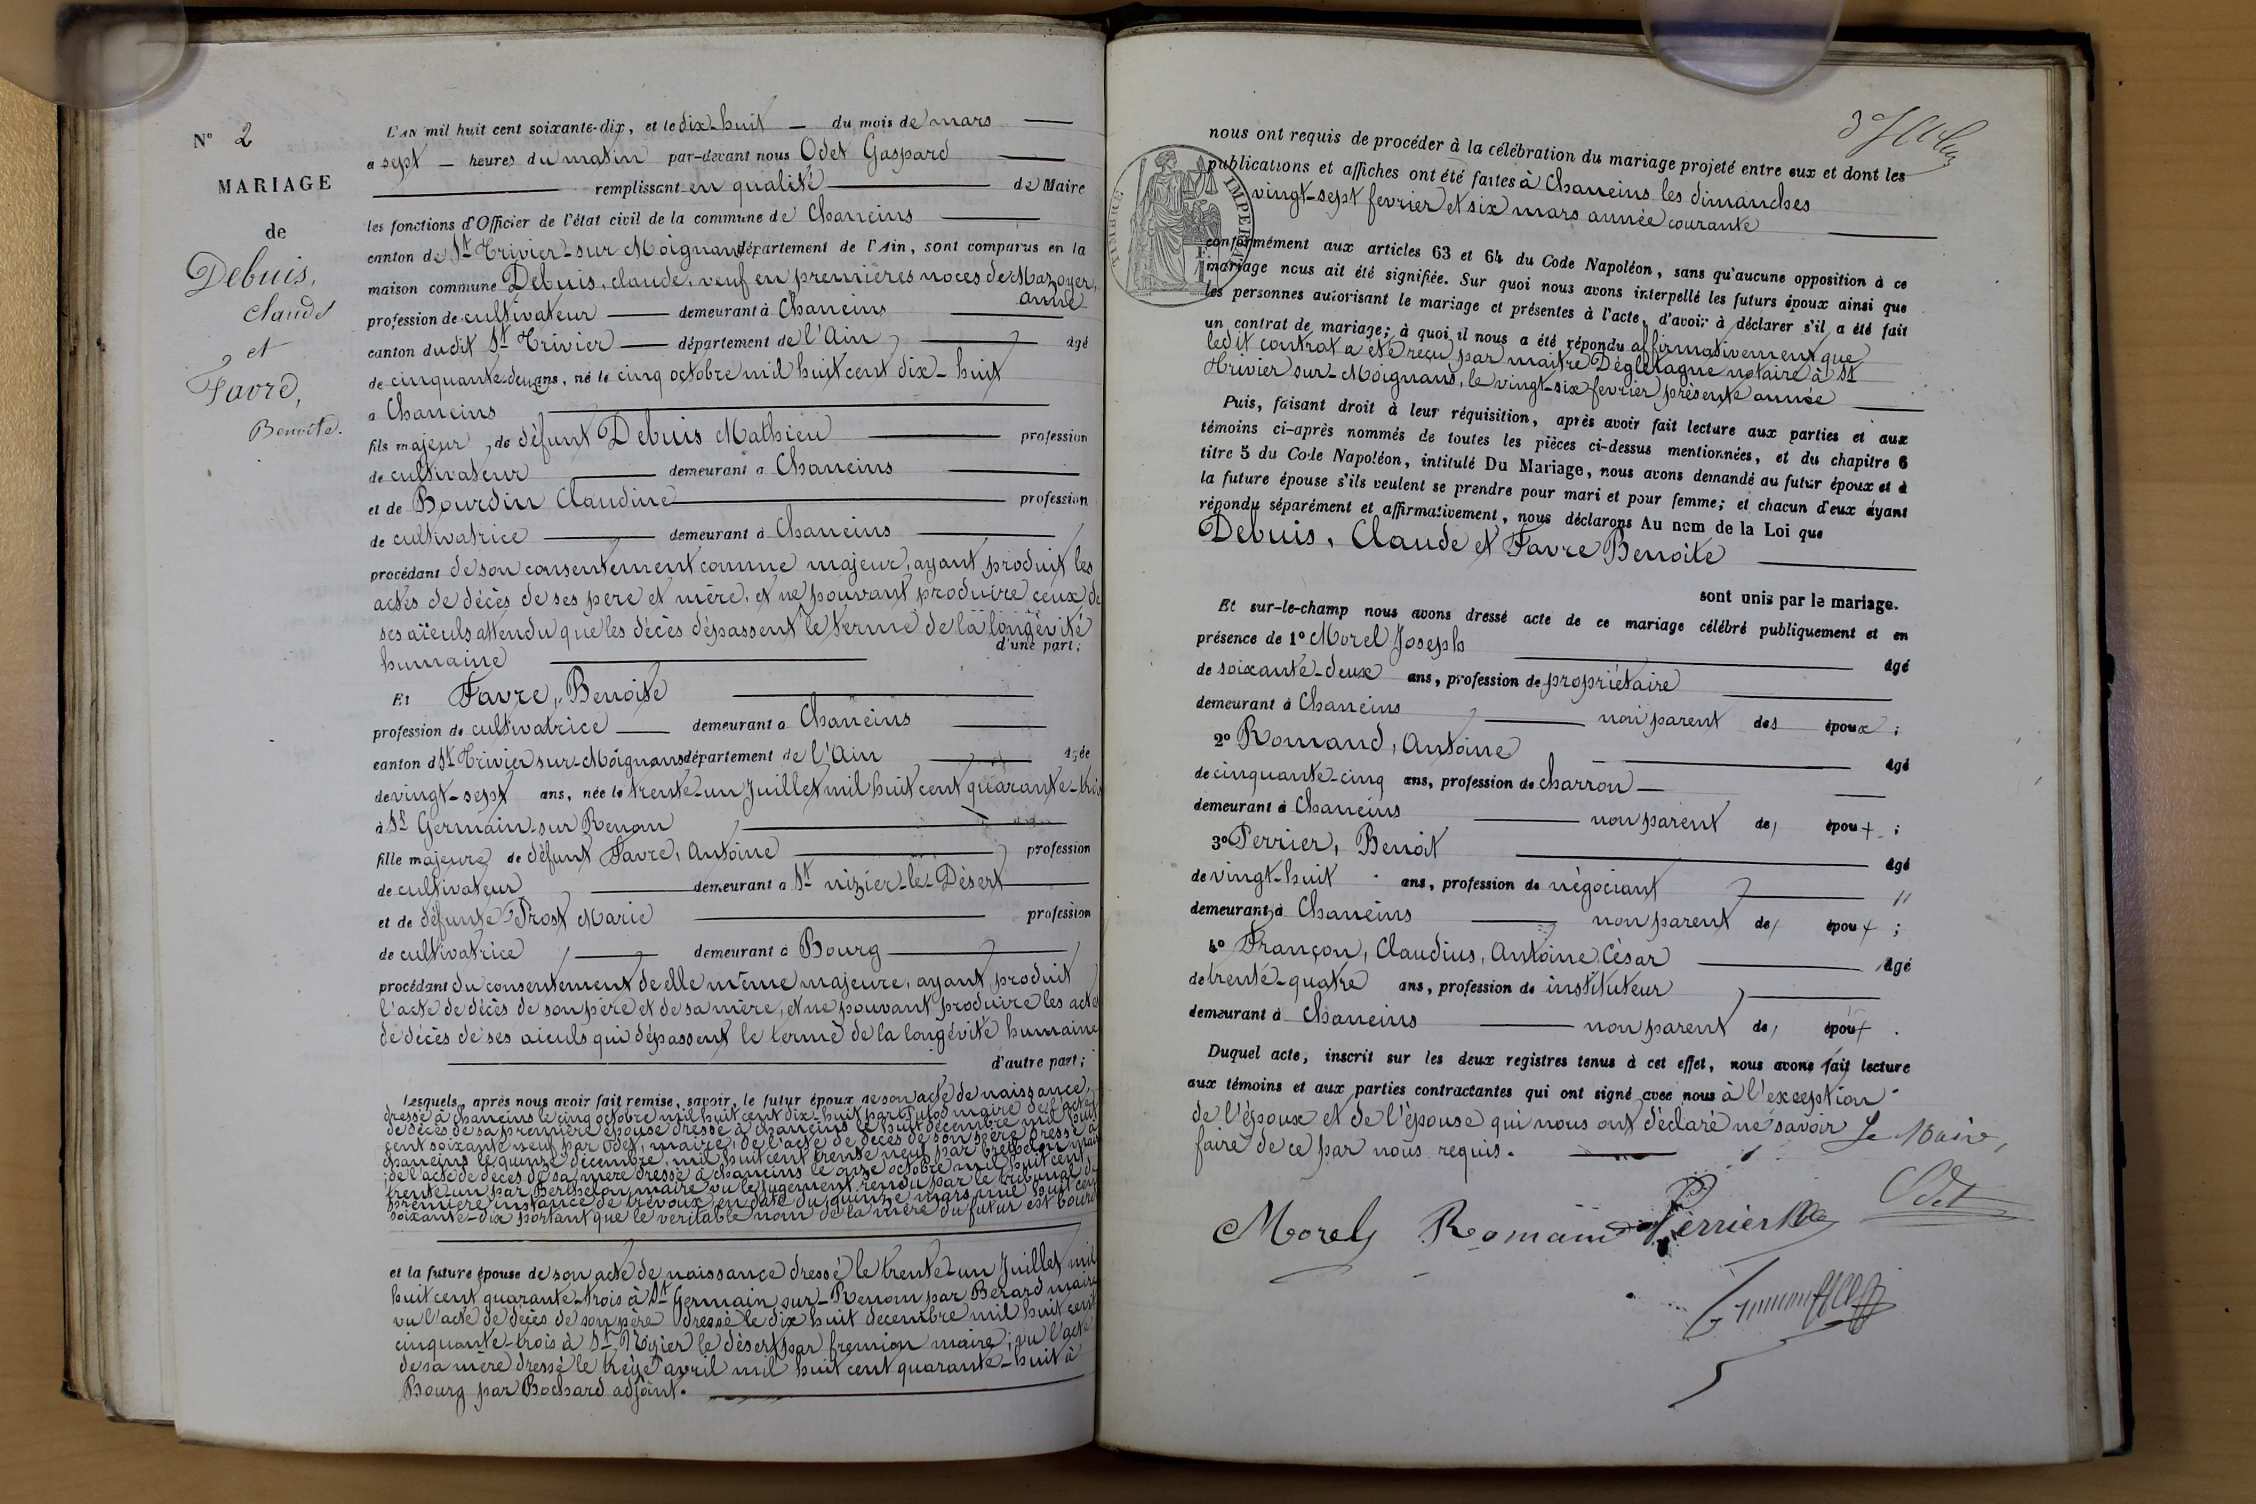 N° 2
MARIAGE
de
Debuis,
Claude
et
Favre,
Benoite.
L'AN mil huit cent soixante-dix, et le dix-huit du mois de mars
a sept heures du matin par-devant nous Odet Gaspard
remplissant en qualité de Maire
les fonctions d'Officier de l'état civil de la commune de Chaneins
canton de St Trivier-sur Moignans département de l'Ain, sont comparus en la
maison commune Debuis, claude, veuf en premières noces de Mazoyer,
anne
profession de cultivateur demeurant à Chaneins
canton dudit St Trivier département de l'Ain âgé
de cinquante-deux ans, né le cinq octobre mil huit cent dix-huit
a Chaneins
fils majeur, de défunt Debuis Mathieu profession
de cultivateur demeurant a Chaneins
et de Bourdin Claudine profession
de cultivatrice demeurant à Chaneins
procédant de son consentement comme majeur, ayant produit les
actes de décès de ses père et mère, et ne pouvant produire ceux de
ses aïeuls attendu que les décès dépassent le terme de la longévité
humaine d'une part;
Et Favre, Benoite
profession de cultivatrice demeurant a Chaneins
canton d St Trivier sur-Moignans département de l'Ain âgée
de vingt-sept ans, née le trente-un Juillet mil huit cent quarante-trois
à St Germain-sur Renom
fille majeure de défunt Favre, Antoine profession
de cultivateur demeurant a St nizier-le-Désert
et de défunte Prost Marie profession
de cultivatrice demeurant à Bourg
procédant du consentement de elle même majeure, ayant produit
l'acte de décès de son père et de sa mère, et ne pouvant produire les actes
de décès de ses aieuls qui dépassent le terme de la longévité humaine
d'autre part;
Lesquels, après nous avoir fait remise, savoir, le futur époux de son acte de naissance,
dressé à chaneins le cinq octobre mil huit cent dix-huit par maire de l'acte
de décès de sa première épouse dressé à chaneins le huit décembre mil huit
cent soixante neuf par Odet, maire, de l'acte de décès de son père dressé à
chaneins le quinze décembre, mil huit cent trente neuf par Berthelon maire
de l'acte de décès de sa mère dressé à chaneins le onze octobre mil huit cent
trente-un par Berthelon maire vu le jugement rendu par le tribunal de
première instance de trévoux en date du quinze mars mil huit cent
soixante-dix portant que le véritable nom de la mère du futur est bourdin
et la future épouse de son acte de naissance dressé le trente-un Juillet mil
huit cent quarante-trois à St Germain sur-Renom par Berard maire
vu l'acte de décès de son père dressé le dix huit decembre mil huit cent
cinquante-trois à St Nizier le désert par fremion maire; vu l'acte
de sa mère dressé le treize avril mil huit cent quarante-huit à
Bourg par Bochard adjoint.
TIMBRE IMPERIAL
nous ont requis de procéder à la célébration du mariage projeté entre eux et dont les
publications et affiches ont été faites à Chaneins les dimanches
vingt-sept fevrier et six mars année courante
conformément aux articles 63 et 64 du Code Napoléon, sans qu'aucune opposition à ce
mariage nous ait été signifiée. Sur quoi nous avons interpellé les futurs époux ainsi que
les personnes autorisant le mariage et présentes à l'acte, d'avoir à déclarer s'il a été fait
un contrat de mariage; à quoi il nous a été répondu affirmativement que
ledit contrat a été reçu par maitre Dégletagne notaire à St
Trivier sur-Moignans, le vingt-six fevrier présente année
Puis, faisant droit à leur réquisition, après avoir fait lecture aux parties et aux
témoins ci-après nommés de toutes les pièces ci-dessus mentionnées, et du chapitre 6
titre 5 du Code Napoléon, intitulé Du Mariage, nous avons demandé au futur époux et à
la future épouse s'ils veulent se prendre pour mari et pour femme; et chacun d'eux ayant
répondu séparément et affirmativement, nous déclarons Au nom de la Loi que
Debuis, Claude et Favre Benoite
sont unis par le mariage.
Et sur-le-champ nous avons dressé acte de ce mariage célébré publiquement et en
présence de 1° Morel Joseph âgé
de soixante-deux ans, profession de propriétaire
demeurant à Chaneins non parent des époux;
2° Romand, Antoine âgé
de cinquante-cinq ans, profession de charron
demeurant à Chaneins non parent des époux;
3° Perrier, Benoit âgé
de vingt-huit ans, profession de négociant
demeurant à Chaneins non parent des époux;
4° Françon, Claudius, Antoine César âgé
de trente-quatre ans, profession de instituteur
demeurant à Chaneins non parent des époux.
Duquel acte, inscrit sur les deux registres tenus à cet effet, nous avons fait lecture
aux témoins et aux parties contractantes qui ont signé avec nous à l'exception
de l'époux et de l'épouse qui nous ont déclaré ne savoir
faire de ce par nous requis. Le Maire,
Odet
Morel Romand Perrier